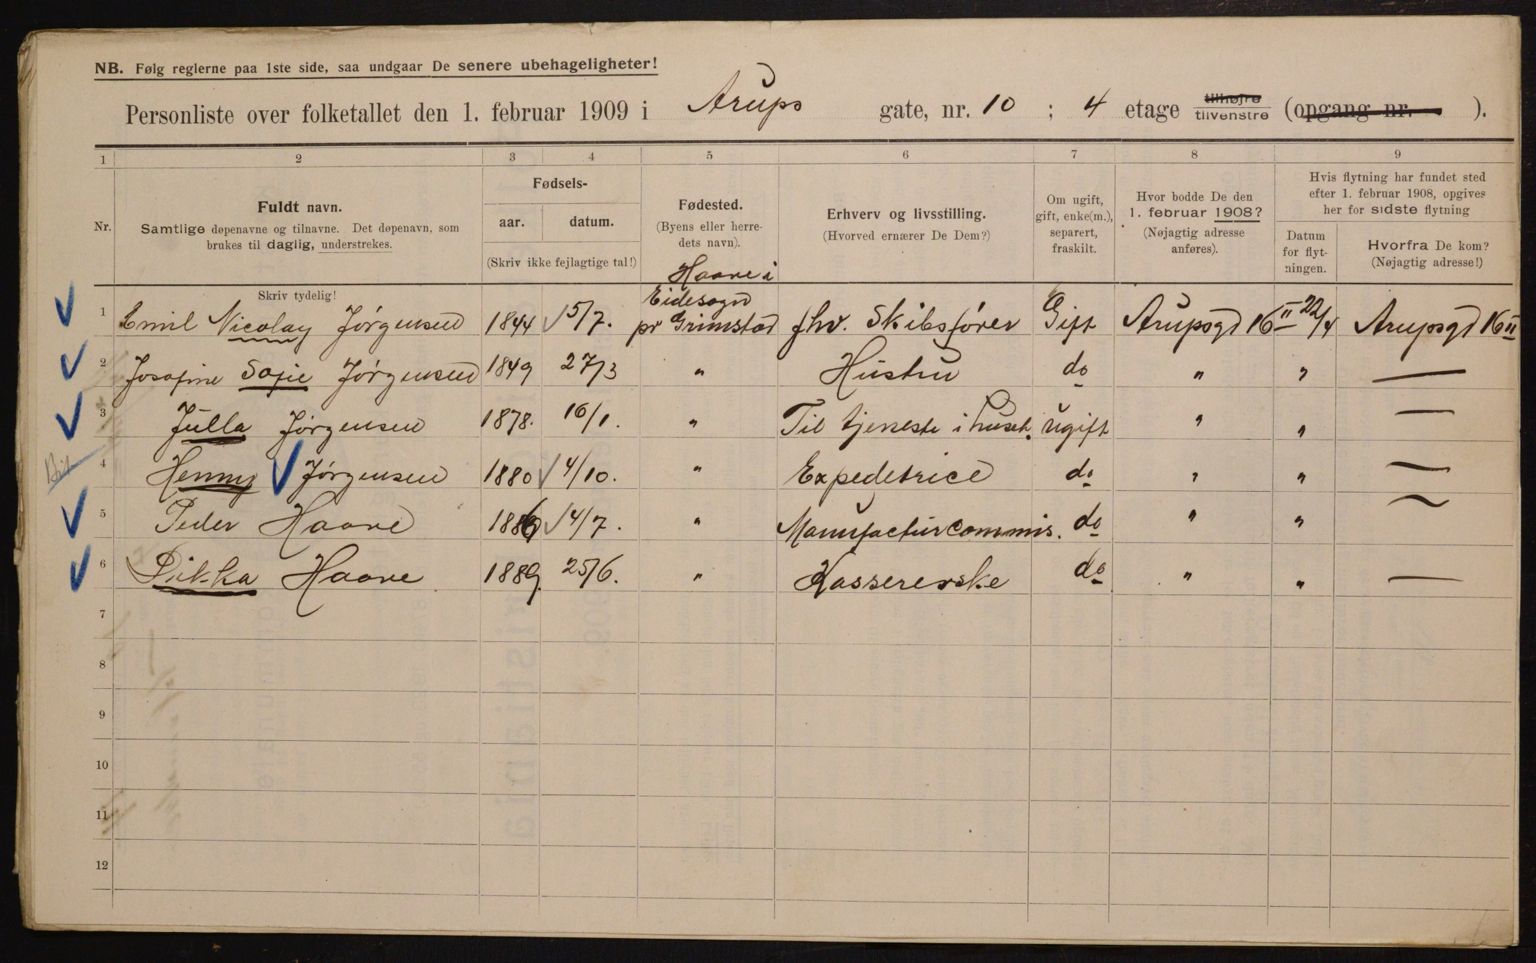 NB. Følg reglerne paa 1ste side, saa undgaar De senere ubehageligheter!
Personliste over folketallet den 1. februar 1909 i Arups gate, nr. 10 ; 4 etage tilhøjre tilvenstre (opgang nr. ).
1 2 3 4 5 6 7 8 9
Nr.
Fuldt navn.
Samtlige døpenavne og tilnavne. Det døpenavn, som
brukes til daglig, understrekes.
Skriv tydelig!
Fødsels-
aar. datum.
(Skriv ikke fejlagtige tal!)
Fødested.
(Byens eller herre-
dets navn).
Erhverv og livsstilling.
(Hvorved ernærer De Dem?)
Om ugift,
gift, enke(m.),
separert,
fraskilt.
Hvor bodde De den
1. februar 1908?
(Nøjagtig adresse
anføres).
Hvis flytning har fundet sted
efter 1. februar 1908, opgives
her for sidste flytning
Datum
for flyt-
ningen.
Hvorfra De kom?
(Nøjagtig adresse!)
Haave i
Eidesogn
1 Emil Nicolay Jørgensen 1844 5/7. pr Grimstad fhv. Skibsfører Gift Arupsgd 16 II 22/4 Arupsgd 16 II
2 Josefine Sofie Jørgensen 1849 27/3 " Hustru do " " —
3 Julla Jørgensen 1878. 16/1. " Til tjeneste i huset. ugift " " —
4 Henny Jørgensen 1880 4/10. " Expedetrice do " " —
5 Peder Haave 1886 4/7. " Manufacturcommis. do " " —
6 Dikka Haave 1889. 25/6. " Kassererske do " " —
7
8
9
10
11
12